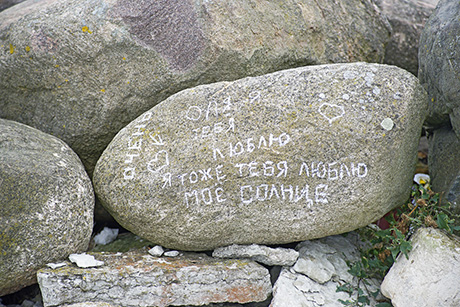 ОЛЯ Я
ТЕБЯ
ЛЮБЛЮ
ОЧЕНЬ
Я ТОЖЕ ТЕБЯ ЛЮБЛЮ
МОЕ СОЛНЦЕ